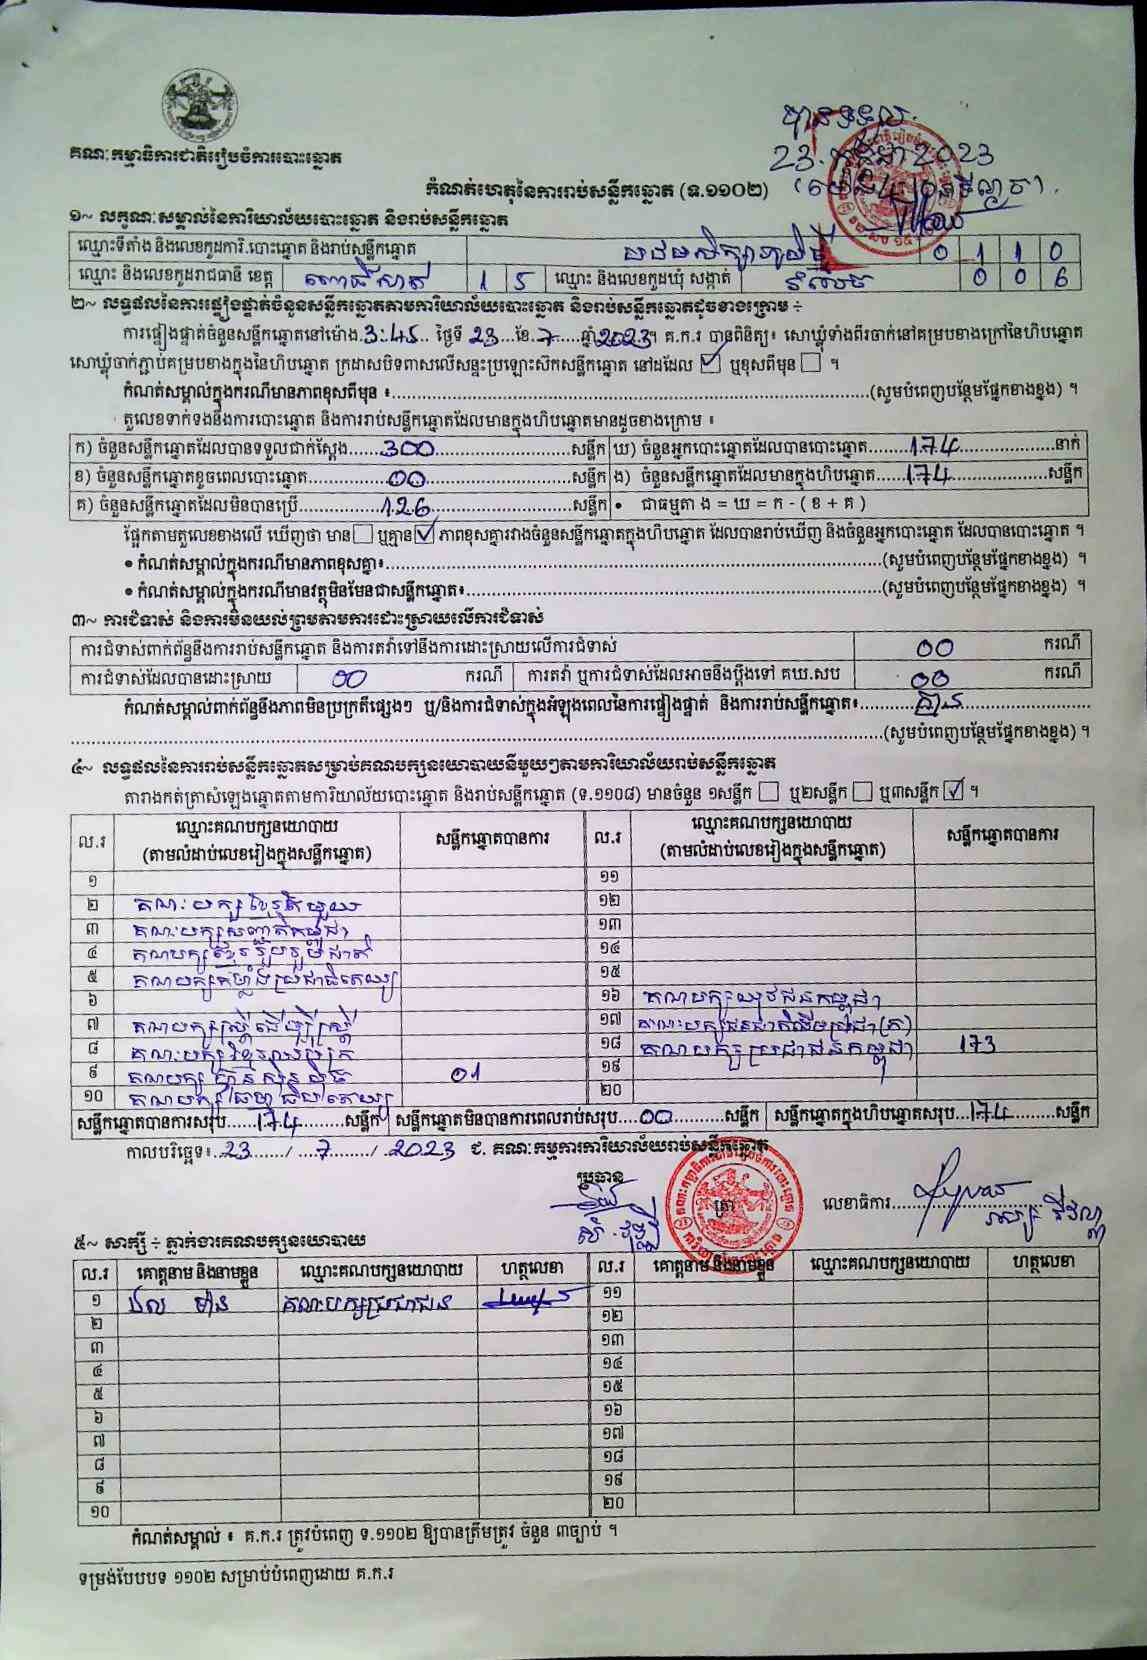 គណៈកម្មាធិការជាតិរៀបចំការបោះឆ្នោត
បានទទួល
23. កក្កដា 2023
កំណត់ហេតុនៃការរាប់សន្លឹកឆ្នោត (ទ.១១០២)
១~ លក្ខណៈសម្គាល់នៃការិយាល័យបោះឆ្នោត និងរាប់សន្លឹកឆ្នោត
ឈ្មោះទីតាំង និងលេខកូដការិ.បោះឆ្នោត និងរាប់សន្លឹកឆ្នោត 0 1 1 0
ឈ្មោះ និងលេខកូដរាជធានី ខេត្ត ពោធិ៍សាត់ 1 5 ឈ្មោះ និងលេខកូដឃុំ សង្កាត់ 0 0 6
២~ លទ្ធផលនៃការផ្ទៀងផ្ទាត់ចំនួនសន្លឹកឆ្នោតតាមការិយាល័យបោះឆ្នោត និងរាប់សន្លឹកឆ្នោតដូចខាងក្រោម ÷
ការផ្ទៀងផ្ទាត់ចំនួនសន្លឹកឆ្នោតនៅម៉ោង 3:45 ថ្ងៃទី 23 ខែ 7 ឆ្នាំ 2023។ គ.ក.រ បានពិនិត្យ៖ សោឃ្លុំទាំងពីរចាក់នៅគម្របខាងក្រៅនៃហិបឆ្នោត
សោឃ្លុំចាក់ភ្ជាប់គម្របខាងក្នុងនៃហិបឆ្នោត ក្រដាសបិទពាសលើសន្ទះប្រឡោះស៊កសន្លឹកឆ្នោត នៅដដែល ☑ ឬខុសពីមុន ☐ ។
កំណត់សម្គាល់ក្នុងករណីមានភាពខុសពីមុន ៖ (សូមបំពេញបន្ថែមផ្នែកខាងខ្នង) ។
តួលេខទាក់ទងនឹងការបោះឆ្នោត និងការរាប់សន្លឹកឆ្នោតដែលមានក្នុងហិបឆ្នោតមានដូចខាងក្រោម ៖
ក) ចំនួនសន្លឹកឆ្នោតដែលបានទទួលជាក់ស្តែង 300 សន្លឹក ឃ) ចំនួនអ្នកបោះឆ្នោតដែលបានបោះឆ្នោត 174 នាក់
ខ) ចំនួនសន្លឹកឆ្នោតខូចពេលបោះឆ្នោត 00 សន្លឹក ង) ចំនួនសន្លឹកឆ្នោតដែលមានក្នុងហិបឆ្នោត 174 សន្លឹក
គ) ចំនួនសន្លឹកឆ្នោតដែលមិនបានប្រើ 126 សន្លឹក • ជាធម្មតា ង = ឃ = ក - ( ខ + គ )
ផ្អែកតាមតួលេខខាងលើ ឃើញថា មាន ☐ ឬគ្មាន ☑ ភាពខុសគ្នារវាងចំនួនសន្លឹកឆ្នោតក្នុងហិបឆ្នោត ដែលបានរាប់ឃើញ និងចំនួនអ្នកបោះឆ្នោត ដែលបានបោះឆ្នោត ។
• កំណត់សម្គាល់ក្នុងករណីមានភាពខុសគ្នា៖ (សូមបំពេញបន្ថែមផ្នែកខាងខ្នង) ។
• កំណត់សម្គាល់ក្នុងករណីមានវត្ថុមិនមែនជាសន្លឹកឆ្នោត៖ (សូមបំពេញបន្ថែមផ្នែកខាងខ្នង) ។
៣~ ការជំទាស់ និងការមិនយល់ព្រមតាមការដោះស្រាយលើការជំទាស់
ការជំទាស់ពាក់ព័ន្ធនឹងការរាប់សន្លឹកឆ្នោត និងការតវ៉ាទៅនឹងការដោះស្រាយលើការជំទាស់ 00 ករណី
ការជំទាស់ដែលបានដោះស្រាយ 00 ករណី ការតវ៉ា ឬការជំទាស់ដែលអាចនឹងប្តឹងទៅ គឃ.សប 00 ករណី
កំណត់សម្គាល់ពាក់ព័ន្ធនឹងភាពមិនប្រក្រតីផ្សេងៗ ឬ/និងការជំទាស់ក្នុងអំឡុងពេលនៃការផ្ទៀងផ្ទាត់ និងការរាប់សន្លឹកឆ្នោត៖ គ្មាន
(សូមបំពេញបន្ថែមផ្នែកខាងខ្នង) ។
៤~ លទ្ធផលនៃការរាប់សន្លឹកឆ្នោតសម្រាប់គណបក្សនយោបាយនីមួយៗតាមការិយាល័យរាប់សន្លឹកឆ្នោត
តារាងកត់ត្រាសំឡេងឆ្នោតតាមការិយាល័យបោះឆ្នោត និងរាប់សន្លឹកឆ្នោត (ទ.១១០៨) មានចំនួន ១សន្លឹក ☐ ឬ២សន្លឹក ☐ ឬ៣សន្លឹក ☑ ។
ល.រ ឈ្មោះគណបក្សនយោបាយ (តាមលំដាប់លេខរៀងក្នុងសន្លឹកឆ្នោត) សន្លឹកឆ្នោតបានការ ល.រ ឈ្មោះគណបក្សនយោបាយ (តាមលំដាប់លេខរៀងក្នុងសន្លឹកឆ្នោត) សន្លឹកឆ្នោតបានការ
១ ១១
២ គណៈបក្សខ្មែរតែមួយ ១២
៣ គណៈបក្សសញ្ជាតិកម្ពុជា ១៣
៤ គណបក្សខ្មែររួបរួមជាតិ ១៤
៥ គណបក្សកម្លាំងប្រជាធិបតេយ្យ ១៥
៦ ១៦ គណបក្សយុវជនកម្ពុជា
៧ គណបក្សស្ត្រីដើម្បីស្ត្រី ១៧
៨ គណៈបក្ស ១៨ គណៈបក្សប្រជាជនកម្ពុជា 173
៩ គណបក្ស 01 ១៩
១០ គណបក្សធម្មាធិបតេយ្យ ២០
សន្លឹកឆ្នោតបានការសរុប 174 សន្លឹក សន្លឹកឆ្នោតមិនបានការពេលរាប់សរុប 00 សន្លឹក សន្លឹកឆ្នោតក្នុងហិបឆ្នោតសរុប 174 សន្លឹក
កាលបរិច្ឆេទ៖ 23 / 7 / 2023 ជ. គណៈកម្មការការិយាល័យរាប់សន្លឹកឆ្នោត
ប្រធាន ត្រា លេខាធិការ
៥~ សាក្សី ÷ ភ្នាក់ងារគណបក្សនយោបាយ
ល.រ គោត្តនាម និងនាមខ្លួន ឈ្មោះគណបក្សនយោបាយ ហត្ថលេខា ល.រ គោត្តនាម និងនាមខ្លួន ឈ្មោះគណបក្សនយោបាយ ហត្ថលេខា
១ គណៈបក្សប្រជាជន ១១
២ ១២
៣ ១៣
៤ ១៤
៥ ១៥
៦ ១៦
៧ ១៧
៨ ១៨
៩ ១៩
១០ ២០
កំណត់សម្គាល់ ៖ គ.ក.រ ត្រូវបំពេញ ទ.១១០២ ឱ្យបានត្រឹមត្រូវ ចំនួន ៣ច្បាប់ ។
ទម្រង់បែបបទ ១១០២ សម្រាប់បំពេញដោយ គ.ក.រ